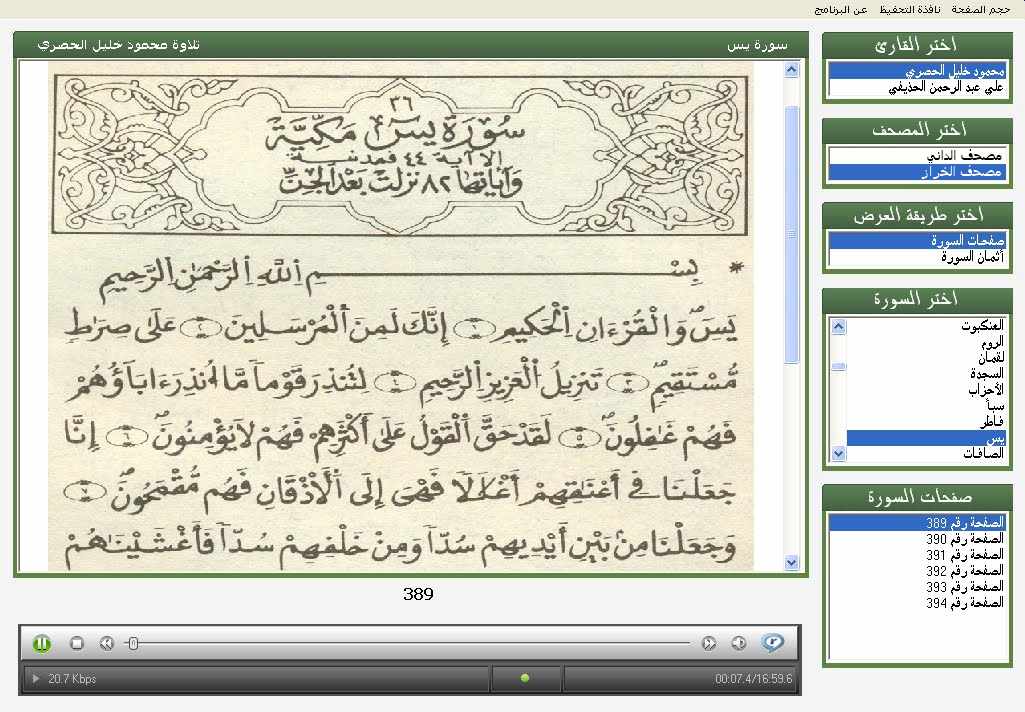 حجم الصفحة نافذة التحفيظ عن البرنامج
سورة يس تلاوة محمود خليل الحصري
٣٦
سُورَةُ يسٓ مَكِّيَّة
إلا آية ٤٤ فمدنية
وآياتها ٨٢ نزلت بعد الجن
بِسْمِ اِ۬للَّهِ اِ۬لرَّحْمَٰنِ اِ۬لرَّحِيمِ
يَسِٓ وَالْقُرْءَانِ اِ۬لْحَكِيمِ ١ إِنَّكَ لَمِنَ اَ۬لْمُرْسَلِينَ ٢ عَلَىٰ صِرَٰطٖ
مُّسْتَقِيمٖ ٣ تَنزِيلُ اُ۬لْعَزِيزِ اِ۬لرَّحِيمِ ٤ لِتُنذِرَ قَوْماٗ مَّا أُنذِرَ ءَابَآؤُهُمْ
فَهُمْ غَٰفِلُونَ ٥ لَقَدْ حَقَّ اَ۬لْقَوْلُ عَلَىٰ أَكْثَرِهِمْ فَهُمْ لَا يُؤْمِنُونَ ٦ إِنَّا
جَعَلْنَا فِي أَعْنَٰقِهِمْ أَغْلَٰلاٗ فَهْيَ إِلَى اَ۬لْأَذْقَانِ فَهُم مُّقْمَحُونَ ٧
وَجَعَلْنَا مِنۢ بَيْنِ أَيْدِيهِمْ سُدّاٗ وَمِنْ خَلْفِهِمْ سُدّاٗ فَأَغْشَيْنَٰهُمْ
389
20.7 Kbps
00:07.4/16:59.6
اختر القارئ
محمود خليل الحصري
علي عبد الرحمن الحذيفي
اختر المصحف
مصحف الداني
مصحف الخراز
اختر طريقة العرض
صفحات السورة
أثمان السورة
اختر السورة
العنكبوت
الروم
لقمان
السجدة
الأحزاب
سبأ
فاطر
يس
الصافات
صفحات السورة
الصفحة رقم 389
الصفحة رقم 390
الصفحة رقم 391
الصفحة رقم 392
الصفحة رقم 393
الصفحة رقم 394